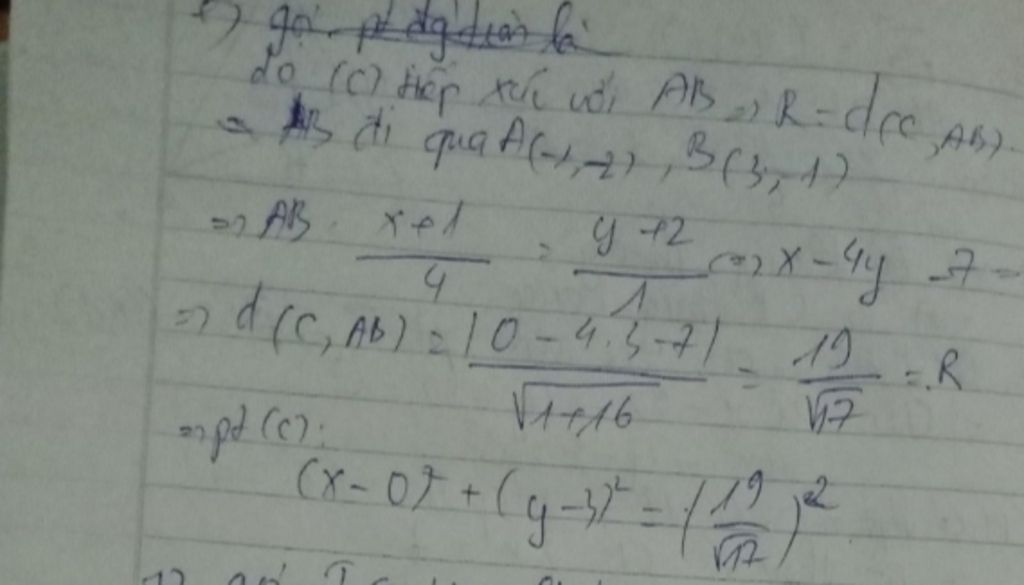 gọi pt đg tròn là
do (C) tiếp xúc với AB => R = d(C, AB).
= AB đi qua A(-1,-2), B(3,-1)
=> AB: \frac{x+1}{4} = \frac{y+2}{1} <=> x - 4y - 7 =
=> d(C, AB) = \frac{|0 - 4.3 - 7|}{\sqrt{1+16}} = \frac{19}{\sqrt{17}} = R
=> pt (C):
(x - 0)^2 + (y - 3)^2 = (\frac{19}{\sqrt{17}})^2